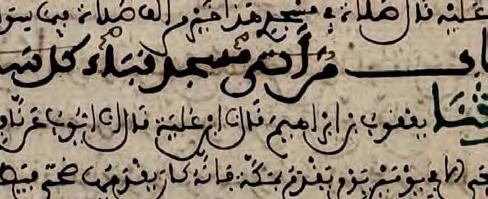 عليه قال صلاة في مسجدي هذا خير من الف صلاة فيما سو
باب من أتى مسجد قباء كل سبت
ثنا يعقوب بن ابراهيم قال نا ابن علية قال نا ايوب عن نا
الا في يومين يوم يقدم مكة فانه كان يقدمها ضحى فيط